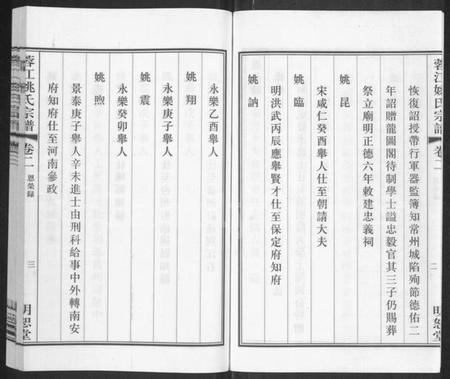 蓉江姚氏宗譜 卷二 二 明恕堂
恢復詔授帶行軍器監簿知常州城陷殉節德佑二
年詔贈龍圖閣待制學士謚忠毅官其三子仍賜葬
祭立廟明正德六年敕建忠義祠
姚昆
宋咸仁癸酉舉人仕至朝請大夫
姚臨
明洪武丙辰應舉賢才仕至保定府知府
姚訥
永樂乙酉舉人
姚翔
永樂庚子舉人
姚震
永樂癸卯舉人
姚煦
景泰庚子舉人辛未進士由刑科給事中外轉南安
府知府仕至河南參政
蓉江姚氏宗譜 卷二 恩榮錄 三 明恕堂